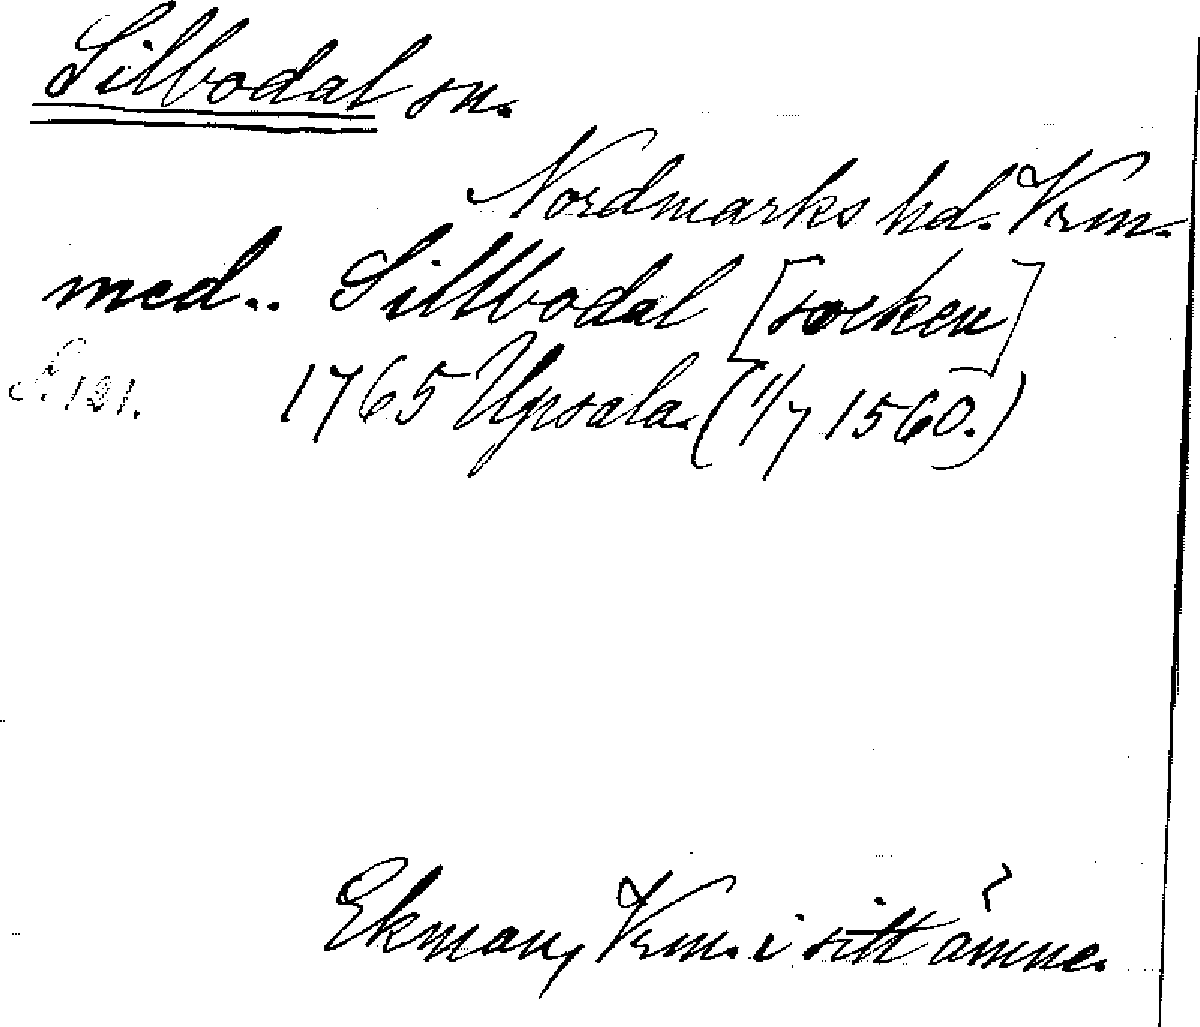 Silbodal sn.
Nordmarks hd. Vrm.
med.. Sillbodal [socken]
S. 121. 1765 Upsala (1/7 1560.)
Ekman, Vrm. i sitt ämne.